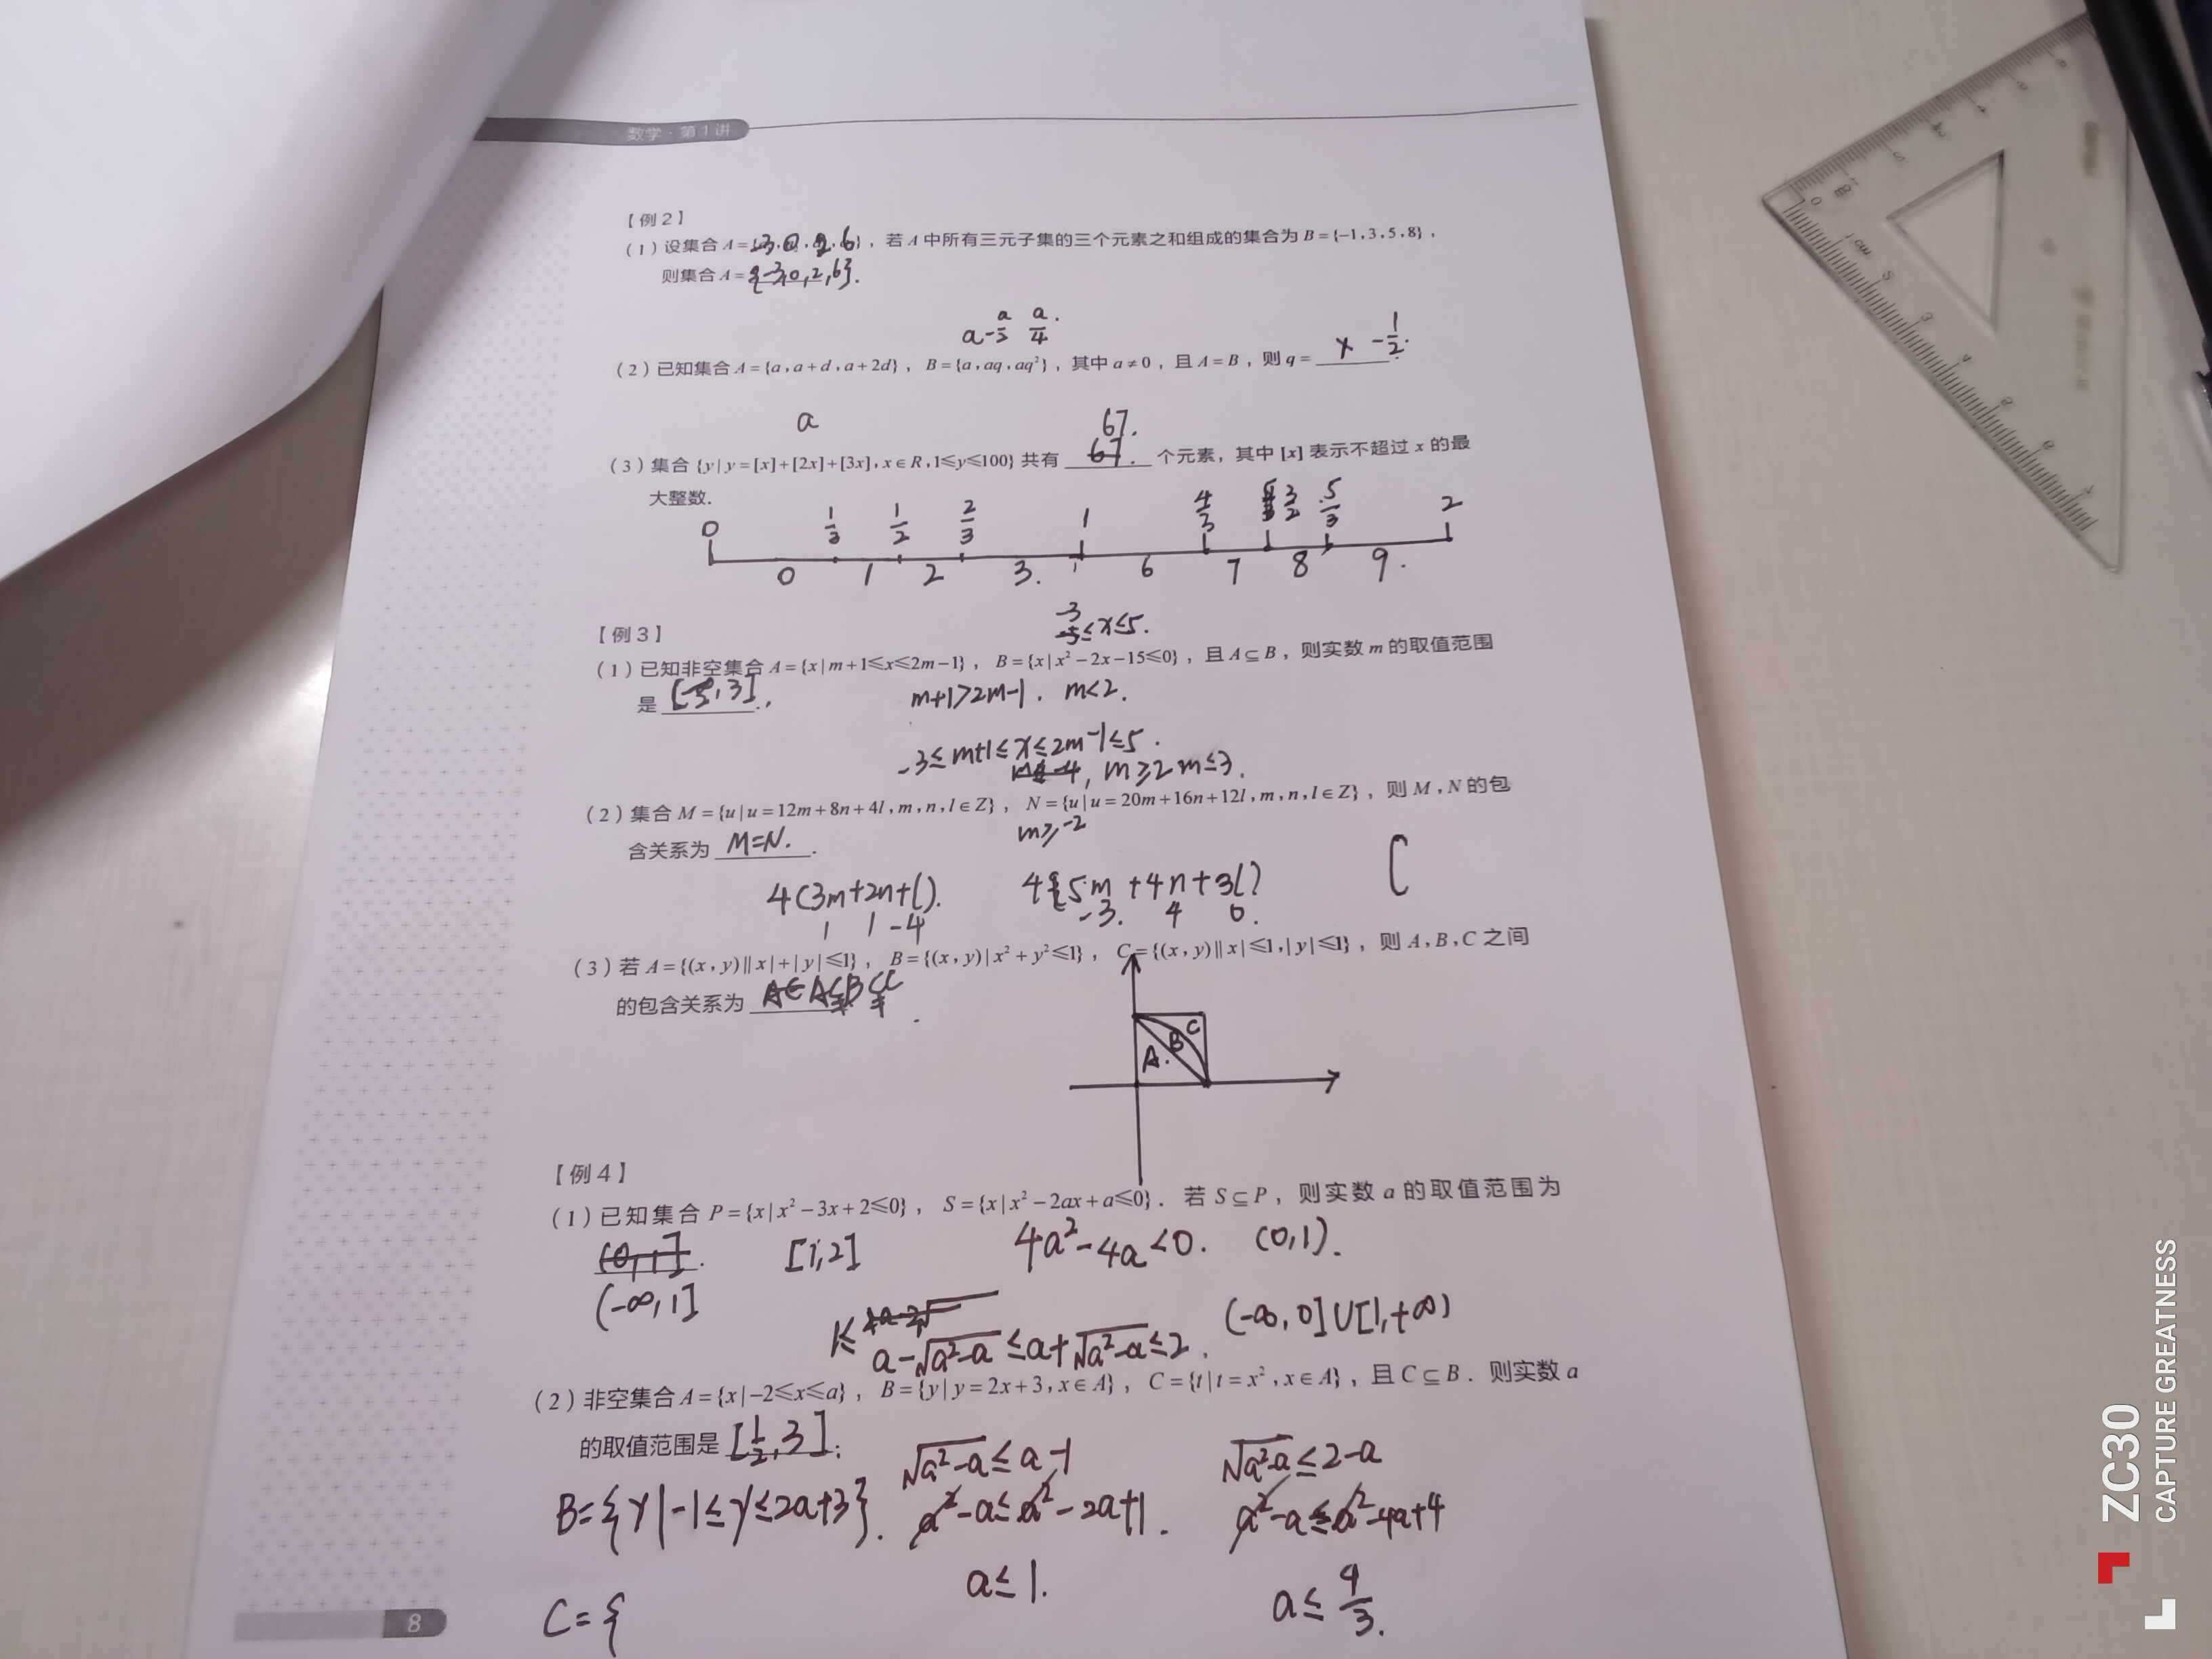 数学·第1讲
【例2】
(1)设集合A={-3,0,2,6},若A中所有三元子集的三个元素之和组成的集合为B={-1,3,5,8},
则集合A={-3,0,2,6}.
a-a/3 a/4.
(2)已知集合A={a,a+d,a+2d},B={a,aq,aq²},其中a≠0,且A=B,则q= -1/2.
a
67.
(3)集合{y|y=[x]+[2x]+[3x],x∈R,1≤y≤100}共有 67. 个元素,其中[x]表示不超过x的最
大整数.
0 1/3 1/2 2/3 1 4/3 3/2 5/3 2
0 1 2 3. 6 7 8 9.
【例3】
-3≤x≤5.
(1)已知非空集合A={x|m+1≤x≤2m-1},B={x|x²-2x-15≤0},且A⊆B,则实数m的取值范围
是 ,3].
m+1>2m-1. m<2.
-3≤m+1≤x≤2m-1≤5.
m≤-4, m≥2 m≤3.
(2)集合M={u|u=12m+8n+4l,m,n,l∈Z},N={u|u=20m+16n+12l,m,n,l∈Z},则M,N的包
含关系为 M=N.
m≥-2
4(3m+2n+l). 4{5m+4n+3l} [
1 1 -4 -3. 4 0.
(3)若A={(x,y)||x|+|y|≤1},B={(x,y)|x²+y²≤1},C={(x,y)||x|≤1,|y|≤1},则A,B,C之间
的包含关系为 A∈ A⊊B⊊C.
A. B C
【例4】
(1)已知集合P={x|x²-3x+2≤0},S={x|x²-2ax+a≤0}.若S⊆P,则实数a的取值范围为
(0,1]. [1,2] 4a²-4a<0. (0,1).
(-∞,1]
(-∞,0]∪[1,+∞)
1≤ a-√(a²-a) ≤a+√(a²-a)≤2.
(2)非空集合A={x|-2≤x≤a},B={y|y=2x+3,x∈A},C={t|t=x²,x∈A},且C⊆B.则实数a
的取值范围是[1/2,3];
√(a²-a)≤a-1 √(a²-a)≤2-a
B={y|-1≤y≤2a+3}. a²-a≤a²-2a+1. a²-a≤a²-4a+4
a≤1. a≤4/3.
C={
8
ZC30
CAPTURE GREATNESS